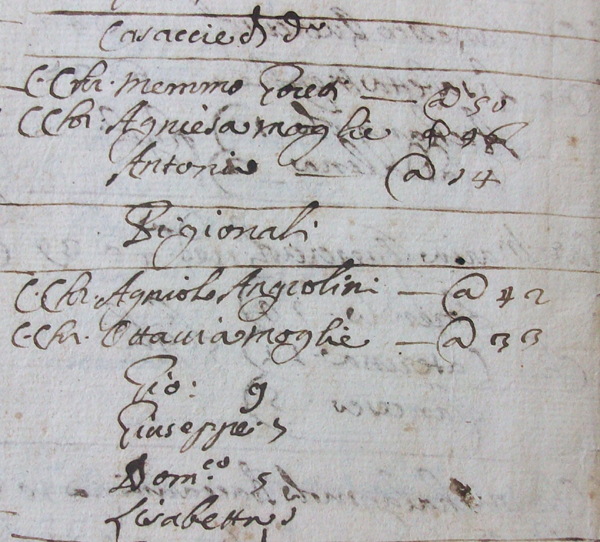 Casaccie d
C. Chr. Memmo — @ 50
C Chr. Agniesa moglie
Antonio — @ 14
Pigionali
C. Chr. Agniolo Angiolini — @ 42
C. Chr. Ottavia moglie — @ 33
Gio: 9
Giuseppe 7
Dom.co 5
Lisabetta 3